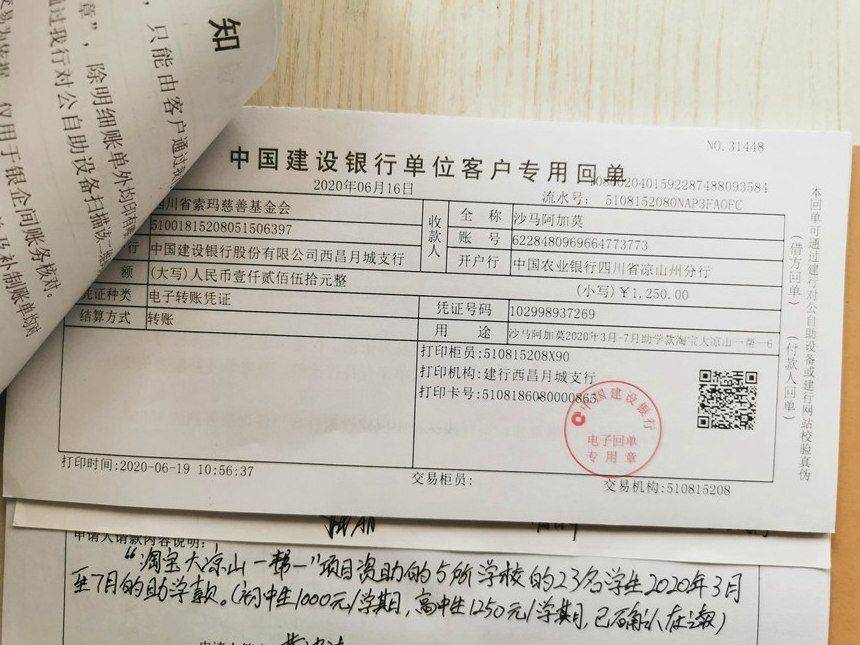 知
，只能由客户通过
章”，除明细账单外均印有
过我行对公自助设备扫描该二
仅用于银企间账务核对。
NO.31448
中国建设银行单位客户专用回单
2020年06月16日
流水号： 5108152080NAP3FAOFC
四川省索玛慈善基金会
收款人
全 称 沙马阿加莫
51001815208051506397
账 号 6228480969664773773
行 中国建设银行股份有限公司西昌月城支行
开户行 中国农业银行四川省凉山州分行
额 (大写)人民币壹仟贰佰伍拾元整
(小写)￥1,250.00
凭证种类 电子转账凭证
凭证号码 102998937269
结算方式 转账
用 途 沙马阿加莫2020年3月-7月助学款淘宝大凉山一帮一6
打印柜员:510815208X90
打印机构:建行西昌月城支行
打印卡号:5108186080000865
中国建设银行
电子回单
专用章
打印时间:2020-06-19 10:56:37
交易柜员:
交易机构:510815208
本回单可通过建行对公自助设备或建行网站校验真伪
(借方回单)
(付款人回单)
申请人请款内容说明：
“淘宝大凉山一帮一”项目资助的5所学校的23名学生2020年3月
至7月的助学款。(初中生1000元/学期,高中生1250元/学期,已确认在读)